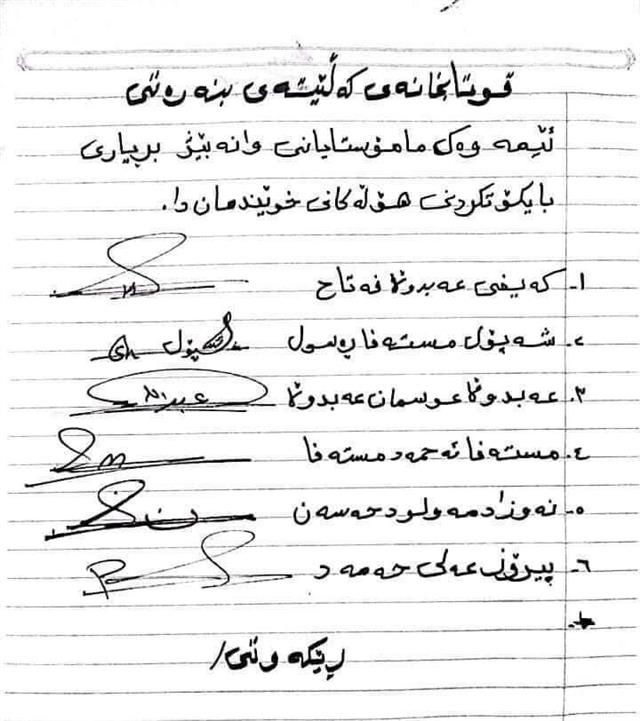 قوتابخانەی کەڵێشەی بنەڕەتی
ئێمە وەک مامۆستایانی وانەبێژ بڕیاری
بایکۆتکردنی هۆڵەکانی خوێندمان دا.
١- کەیفی عەبدوڵا فەتاح
٢- شەپۆل مستەفا ڕەسول شەپۆل
٣- عەبدوڵا عوسمان عەبدوڵا عبداللە
٤- مستەفا ئەحمەد مستەفا
٥- نەوزاد مەولود حەسەن
٦- پیرۆز عەلی حەمەد
ڕێکەوتی/